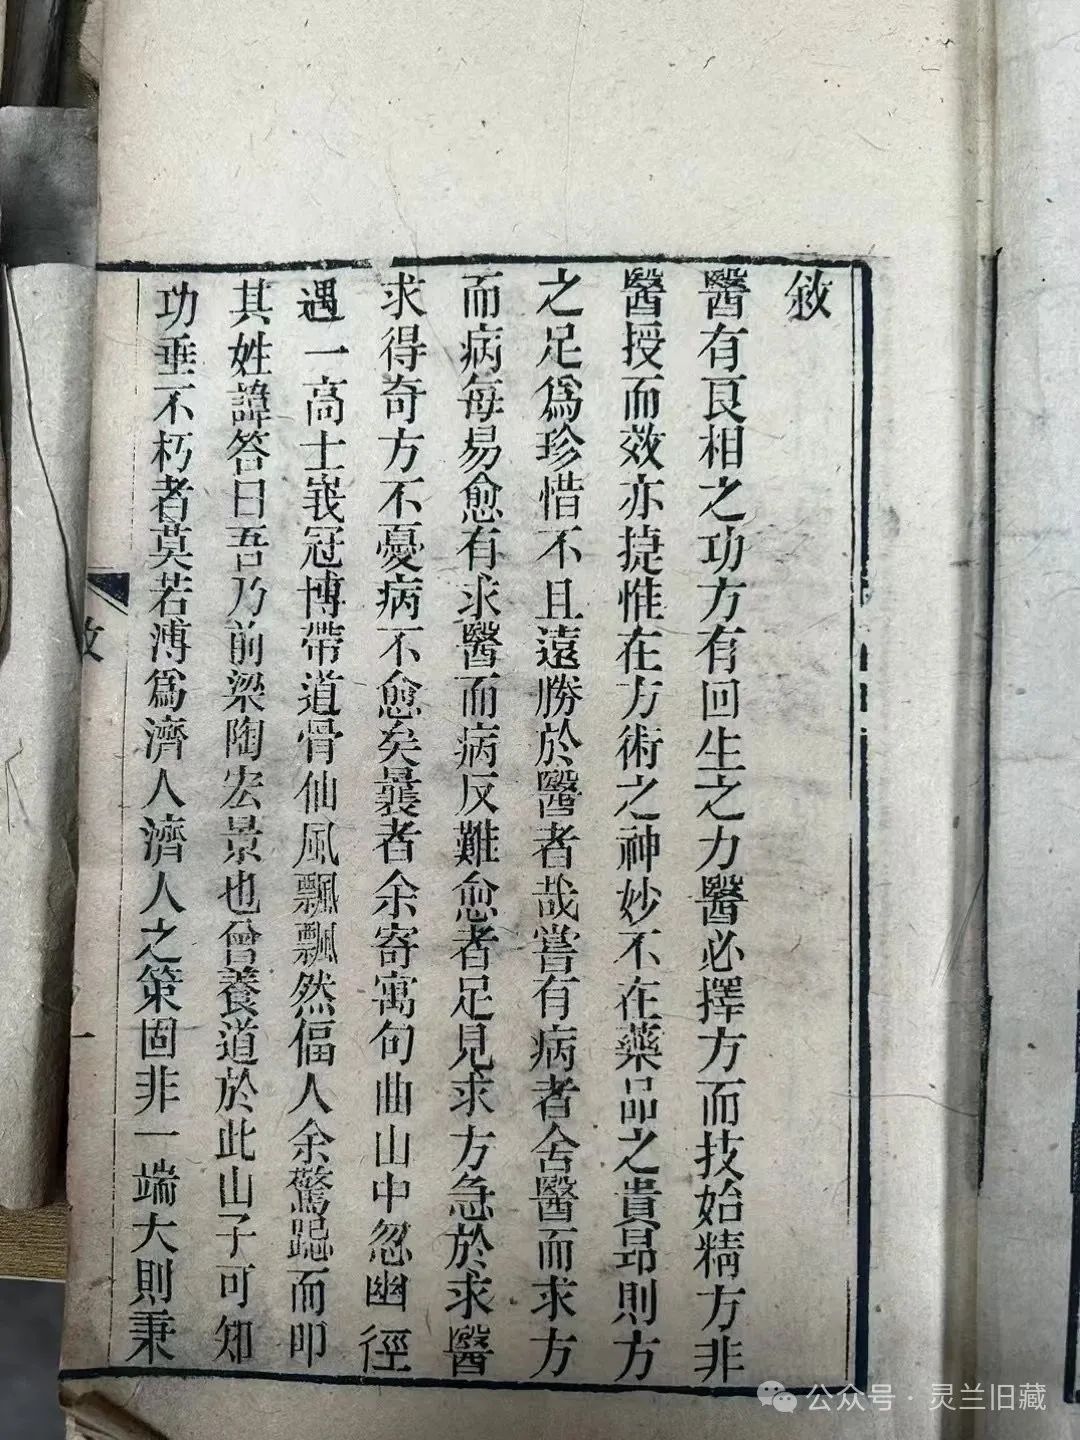 敘
醫有良相之功方有回生之力醫必擇方而技始精方非
醫授而效亦捷惟在方術之神妙不在藥品之貴昂則方
之足爲珍惜不且遠勝於醫者哉嘗有病者舍醫而求方
而病每易愈有求醫而病反難愈者足見求方急於求醫
求得奇方不憂病不愈矣曩者余寄寓句曲山中忽幽徑
遇一高士峩冠博帶道骨仙風飄飄然偪人余驚跽而叩
其姓諱答曰吾乃前梁陶宏景也曾養道於此山子可知
功垂不朽者莫若溥爲濟人濟人之策固非一端大則秉
敘
一
公众号·灵兰旧藏